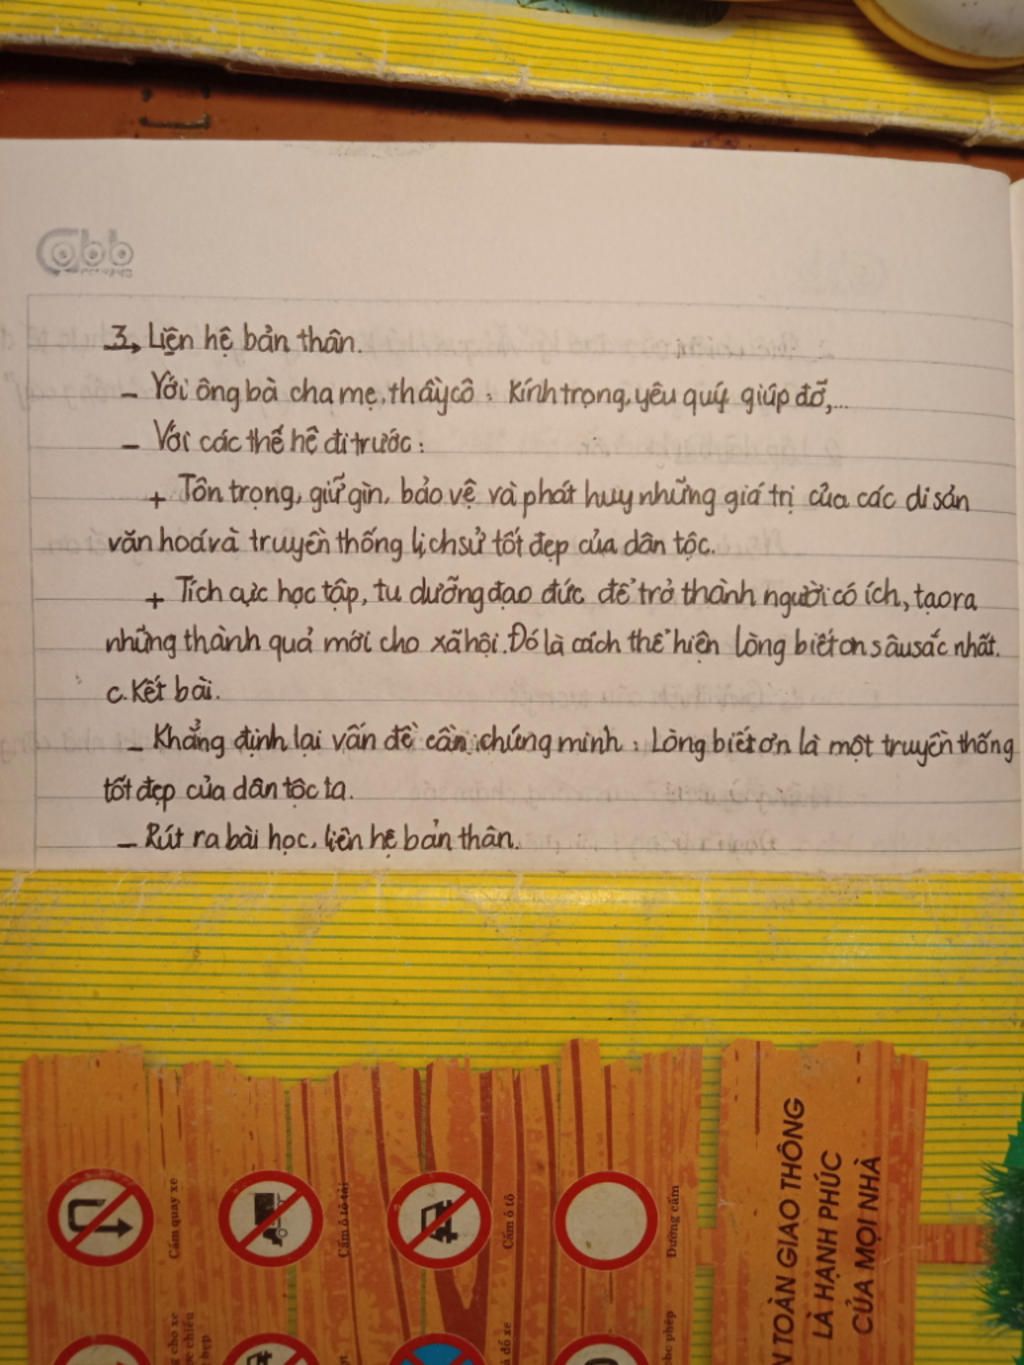 Cabb
3, Liện hệ bản thân.
- Với ông bà cha mẹ, thầy cô : kính trọng, yêu quý giúp đỡ,...
- Với các thế hệ đi trước :
+ Tôn trọng, giữ gìn, bảo vệ và phát huy những giá trị của các di sản
văn hoá và truyền thống lịch sử tốt đẹp của dân tộc.
+ Tích cực học tập, tu dưỡng đạo đức để trở thành người có ích, tạo ra
những thành quả mới cho xã hội. Đó là cách thể hiện lòng biết ơn sâu sắc nhất.
c. Kết bài.
- Khẳng định lại vấn đề cần chứng minh : Lòng biết ơn là một truyền thống
tốt đẹp của dân tộc ta.
- Rút ra bài học, liên hệ bản thân.
Cấm quay xe
Cấm ô tô tải
Cấm ô tô
Đường cấm
N TOÀN GIAO THÔNG
LÀ HẠNH PHÚC
CỦA MỌI NHÀ
g cho xe
c chiều
hẹp
à đỗ xe
ho phép